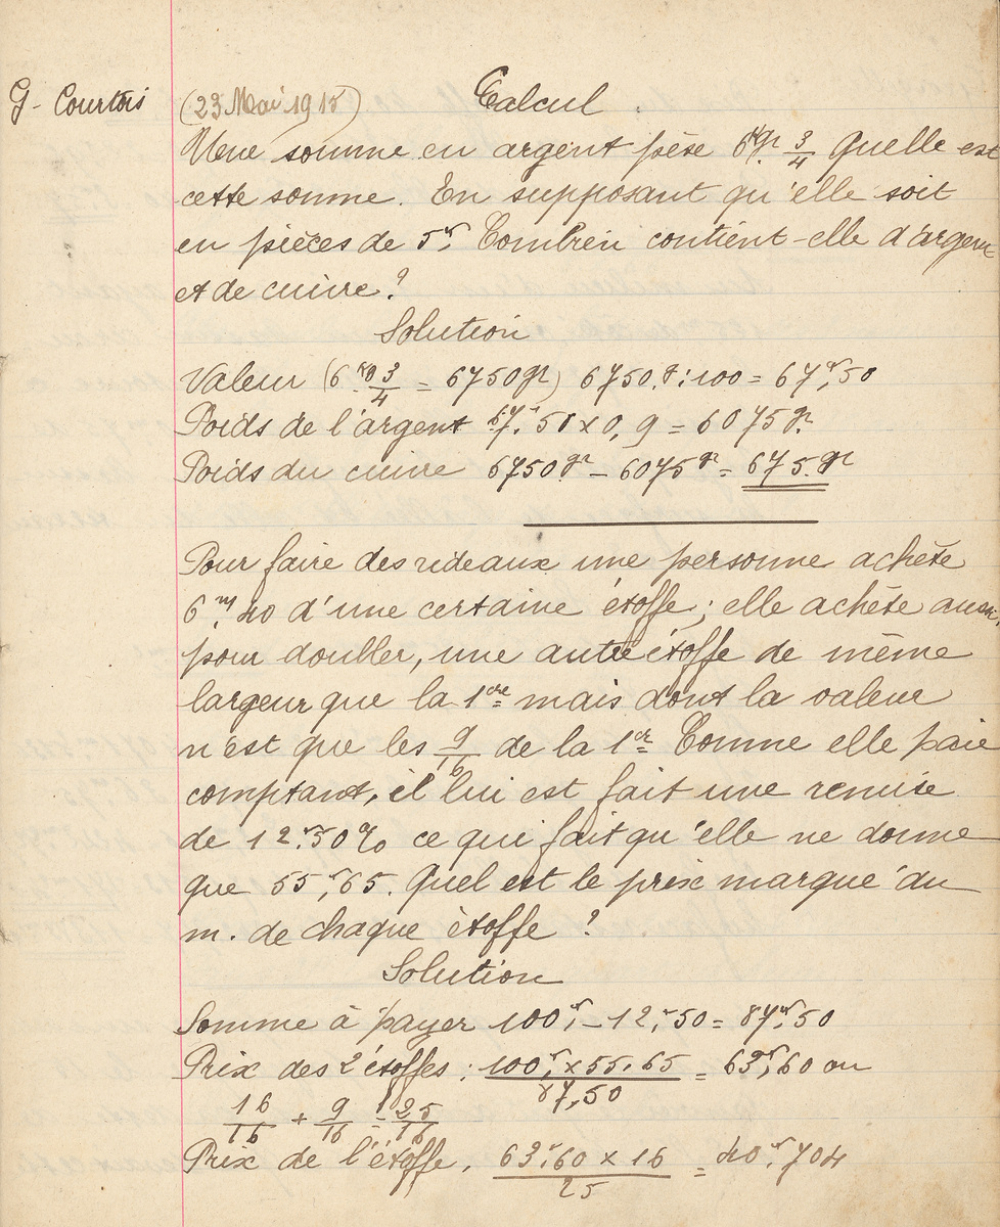 G. Courtois (23 Mai 1915) Calcul.
Une somme en argent pèse 6kgr 3/4 Quelle est
cette somme. En supposant qu'elle soit
en pièces de 5fr. Combien contient-elle d'argent
et de cuivre?
Solution
Valeur (6kg 3/4 = 6750gr) 6750g: 100 = 67fr,50
Poids de l'argent 67,50 x 0,9 = 6075gr.
Poids du cuivre 6750gr - 6075gr = 675gr
Pour faire des rideaux une personne achète
6m,40 d'une certaine étoffe; elle achète aussi,
pour doubler, une autre étoffe de même
largeur que la 1ère mais dont la valeur
n'est que les 9/16 de la 1ère Comme elle paie
comptant, il lui est fait une remise
de 12fr.50% ce qui fait qu'elle ne donne
que 55fr,65. Quel est le prix marqué du
m. de chaque étoffe?
Solution
Somme à payer 100fr, - 12fr,50 = 87fr,50
Prix des 2 étoffes: 100fr, x 55,65 / 87,50 = 63fr,60 ou
16/16 + 9/16 = 25/16
Prix de l'étoffe, 63fr,60 x 16 / 25 = 40fr,704